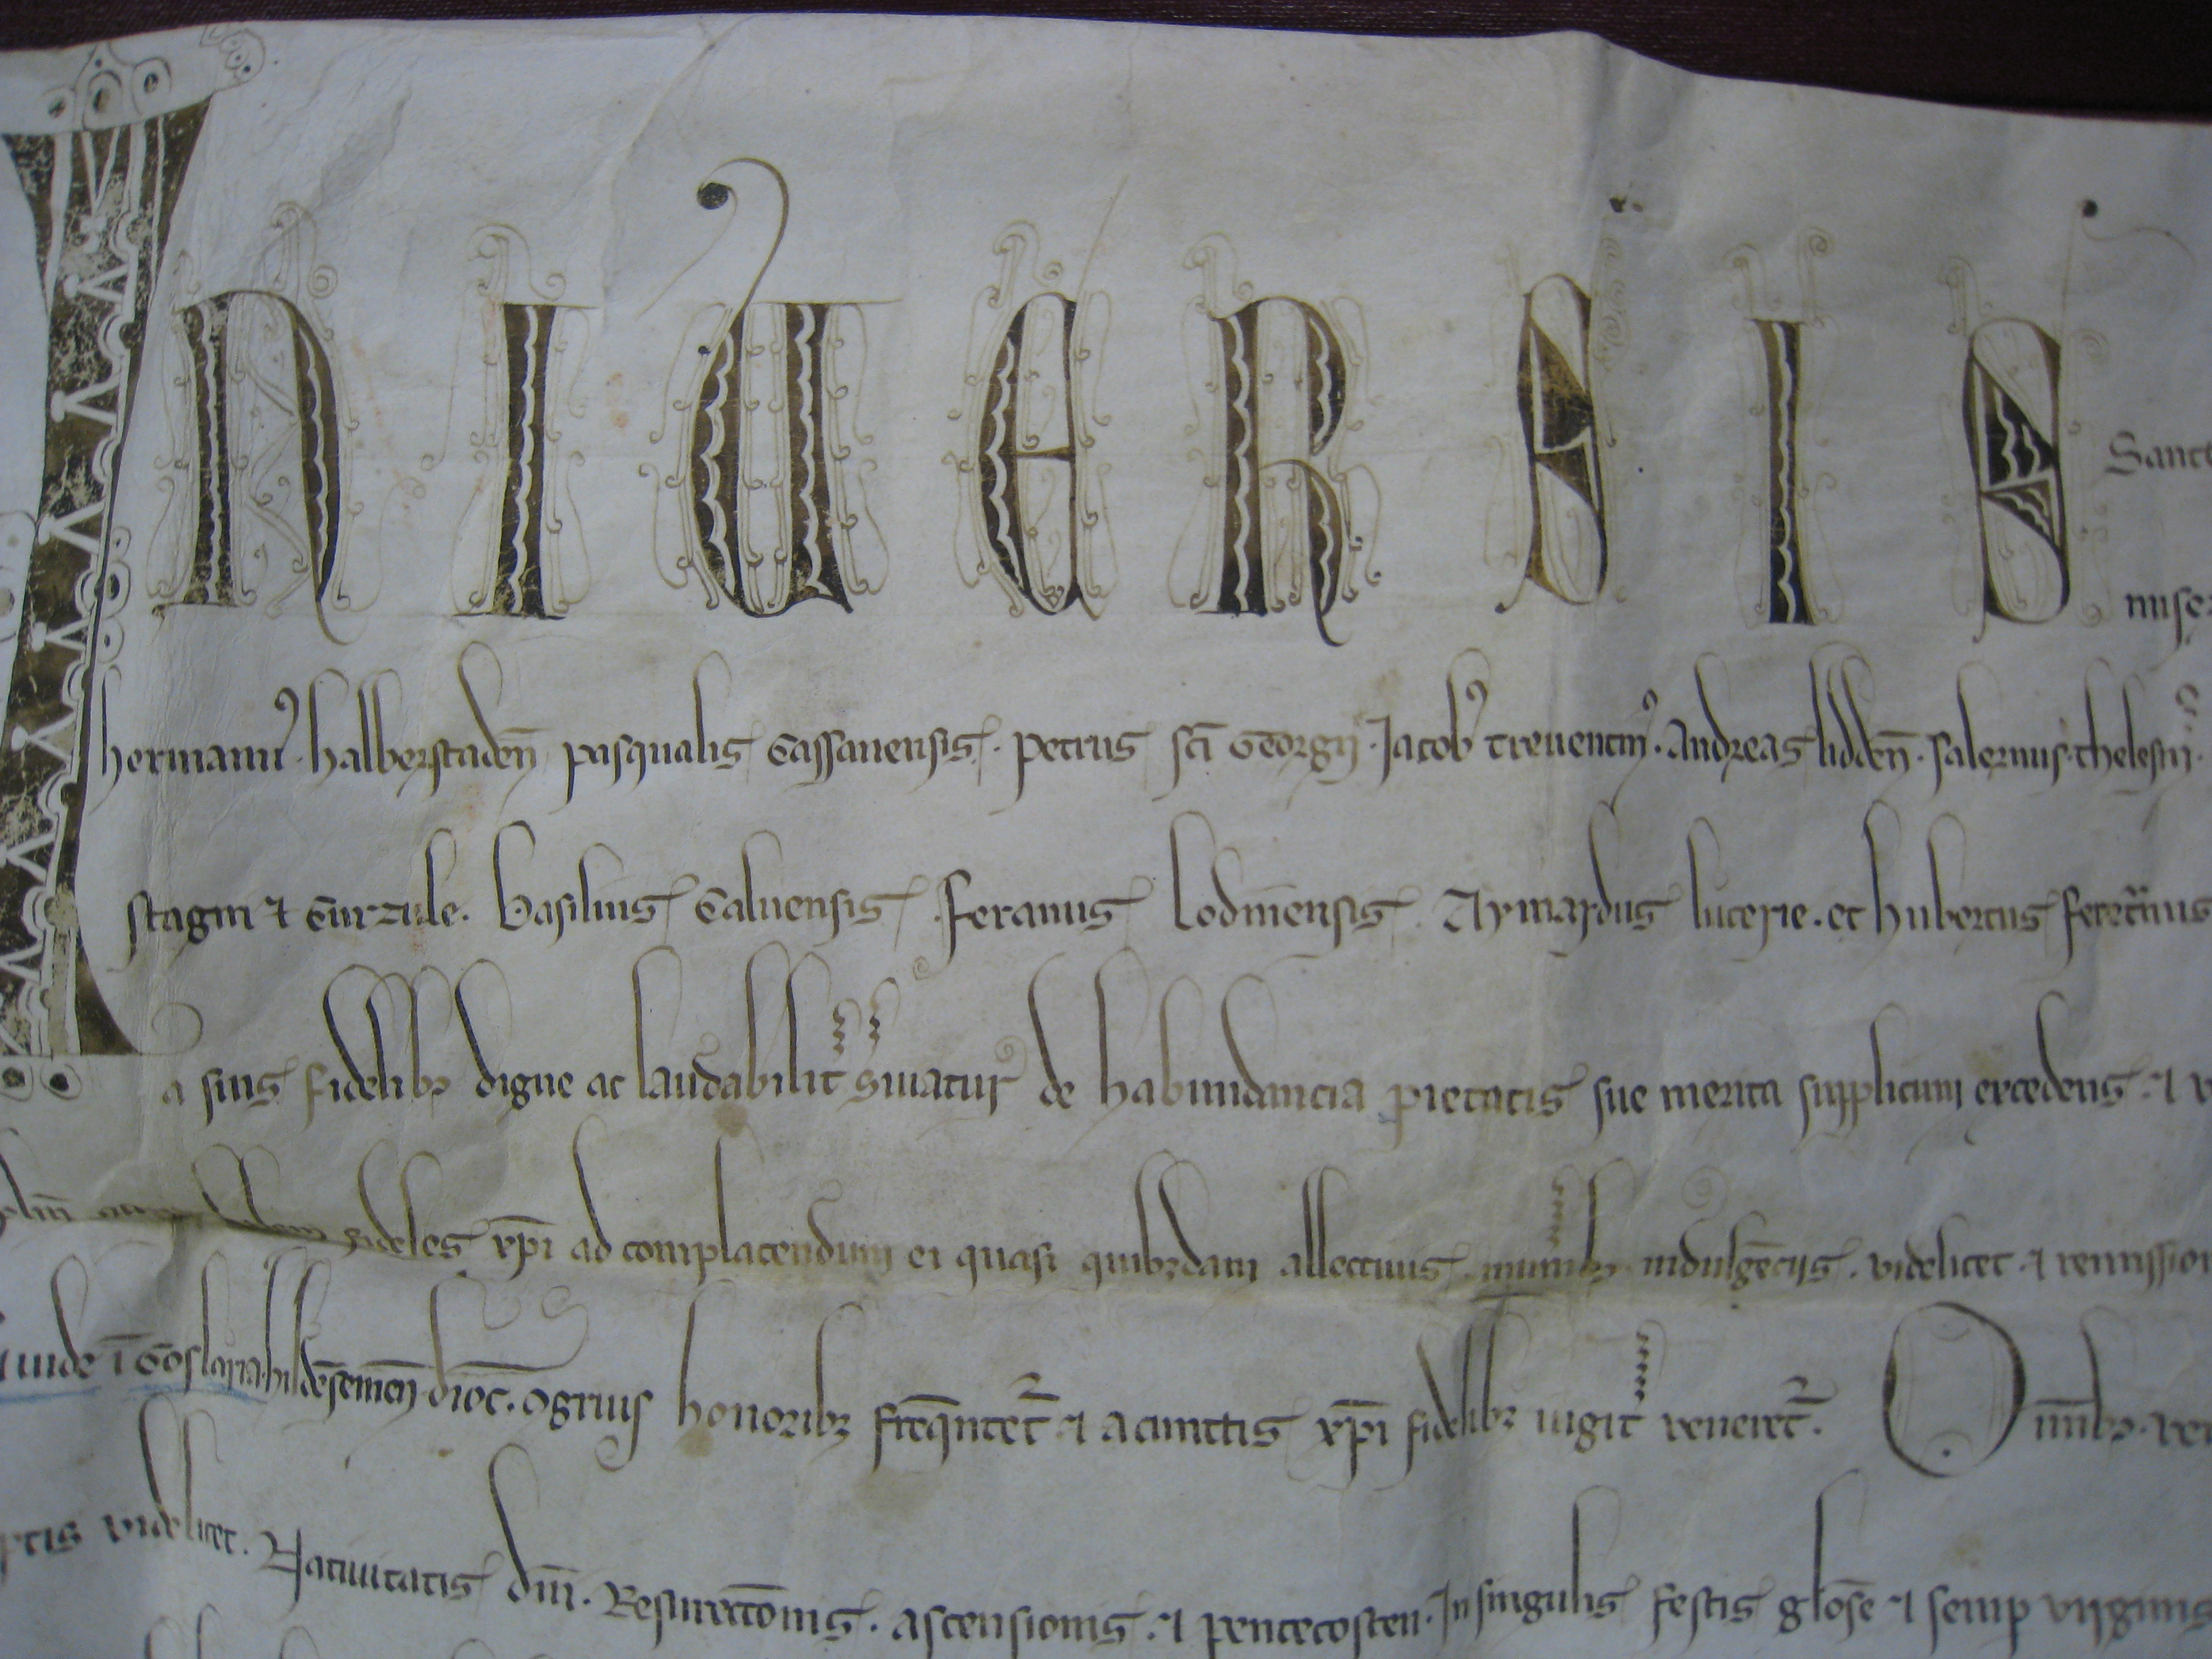 UNIUERSIS Sanct
mise
hermanus halberstaden pasqualis Cassanensis. Petrus sci Georgij. Jacob treuentin. Andreas lidden. Salernus. thelesin.
stagni et Curzule. Basilius Caluensis. feranus Aymardus lucerie. et hubertus feretranus
a suis fidelib digne ac laudabilit de habundancia pietatis sue merita supplicum excedens. et
fideles xpi ad complacendum ei quasi quibusdam allectiuis munib indulgenciis. videlicet et remission
i Goslaria. hildesemen dioc. ogruis honorib frequntet et a cunctis xpi fidelib iugit veneret. Omib. ve
videlicet. Natiuitatis dni. Resurrectonis. ascensionis. et pentecosten. In singulis festis glose et semp virginis